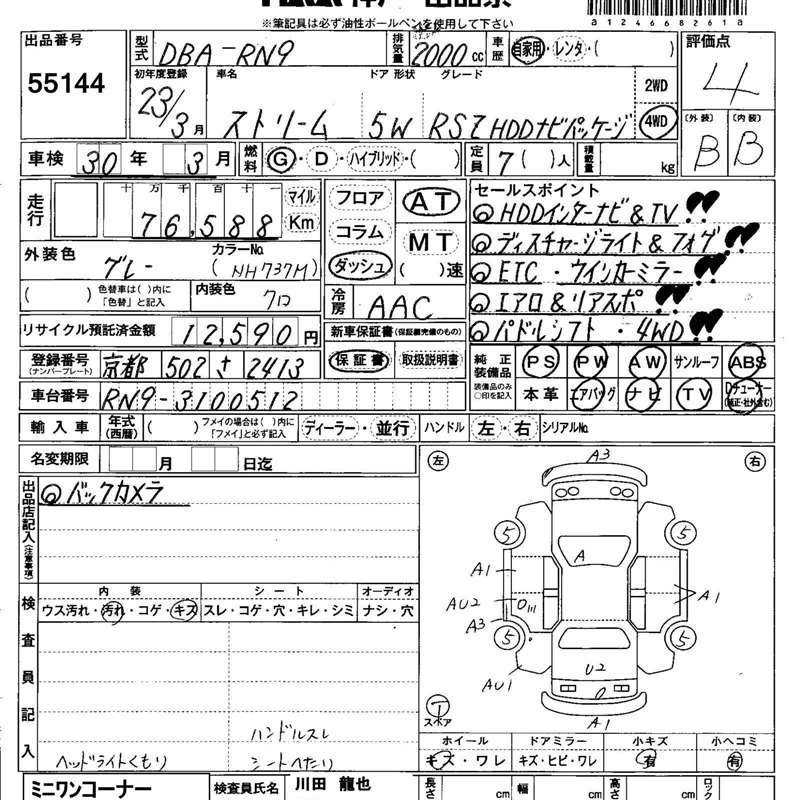 ※筆記具は必ず油性ボールペンを使用して下さい
a1246682261a
出品番号
55144
型式 DBA-RN9
排気量 2000 cc
車歴 自家用・レンタ・( )
評価点
4
初年度登録 車名 ドア 形状 グレード
23/3月 ストリーム 5W RSZ HDDナビパッケージ
2WD
4WD
(外装) (内装)
B B
車検 30年 3月
燃料 G・D・ハイブリッド・( )
定員 7( )人
積載量 kg
走行
十 万 千 百 十 一
76,588
マイル
Km
フロア
コラム
ダッシュ
AT
MT
( )速
セールスポイント
HDDインターナビ&TV!!
ディスチャージライト&フォグ!!
ETC・ウインカーミラー!!
エアロ&リアスポ!!
パドルシフト・4WD!!
外装色 カラーNo.
グレー (NH737M)
( ) 色替車は( )内に「色替」と記入
内装色 クロ
冷房 AAC
リサイクル預託済金額 12,590円
新車保証書(保証継完備のもの)
保証書・取扱説明書
登録番号 (ナンバープレート) 京都 502 さ 2413
純正装備品
装備品のみ○印を記入
PS PW AW サンルーフ ABS
本革 エアバッグ ナビ TV Dチューナー(純正・社外含む)
車台番号 RN9-3100512
輸入車 年式(西暦) ( ) フメイの場合は( )内に「フメイ」と必ず記入
ディーラー・並行
ハンドル 左・右
シリアルNo.
名変期限 月 日迄
出品店記入(注意事項)
バックカメラ
左 右
A3
5 5
A
A1 A1
AU2
A3
5 5
U2
AU1
A1
T
スペア
検査員記入
内装 シート オーディオ
ウス汚れ・汚れ・コゲ・キズ スレ・コゲ・穴・キレ・シミ ナシ・穴
ハンドルスレ
ヘッドライトくもり シートへたり
ホイール ドアミラー 小キズ 小ヘコミ
キズ・ワレ キズ・ヒビ・ワレ 有 有
ミニワンコーナー
検査員氏名 川田 龍也
長さ cm 幅 cm 高さ cm ロック